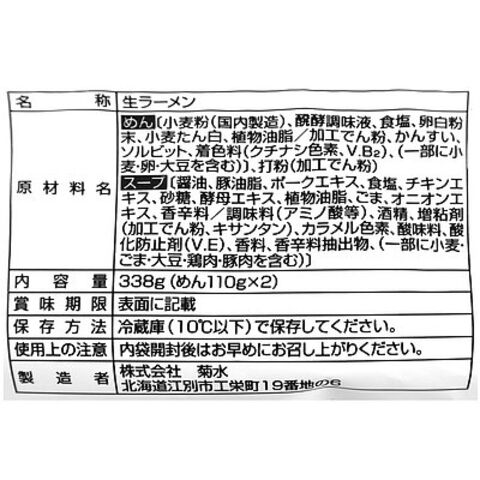 名称 生ラーメン
原材料名 めん〔小麦粉(国内製造)、醗酵調味液、食塩、卵白粉
末、小麦たん白、植物油脂/加工でん粉、かんすい、
ソルビット、着色料(クチナシ色素、V.B₂)、(一部に小
麦・卵・大豆を含む)〕、打粉(加工でん粉)
スープ〔醤油、豚油脂、ポークエキス、食塩、チキンエ
キス、砂糖、酵母エキス、植物油脂、ごま、オニオンエ
キス、香辛料/調味料(アミノ酸等)、酒精、増粘剤
(加工でん粉、キサンタン)、カラメル色素、酸味料、酸
化防止剤(V.E)、香料、香辛料抽出物、(一部に小麦・
ごま・大豆・鶏肉・豚肉を含む)〕
内容量 338g(めん110g×2)
賞味期限 表面に記載
保存方法 冷蔵庫(10℃以下)で保存してください。
使用上の注意 内袋開封後はお早めにお召し上がりください。
製造者 株式会社 菊水
北海道江別市工栄町19番地の6